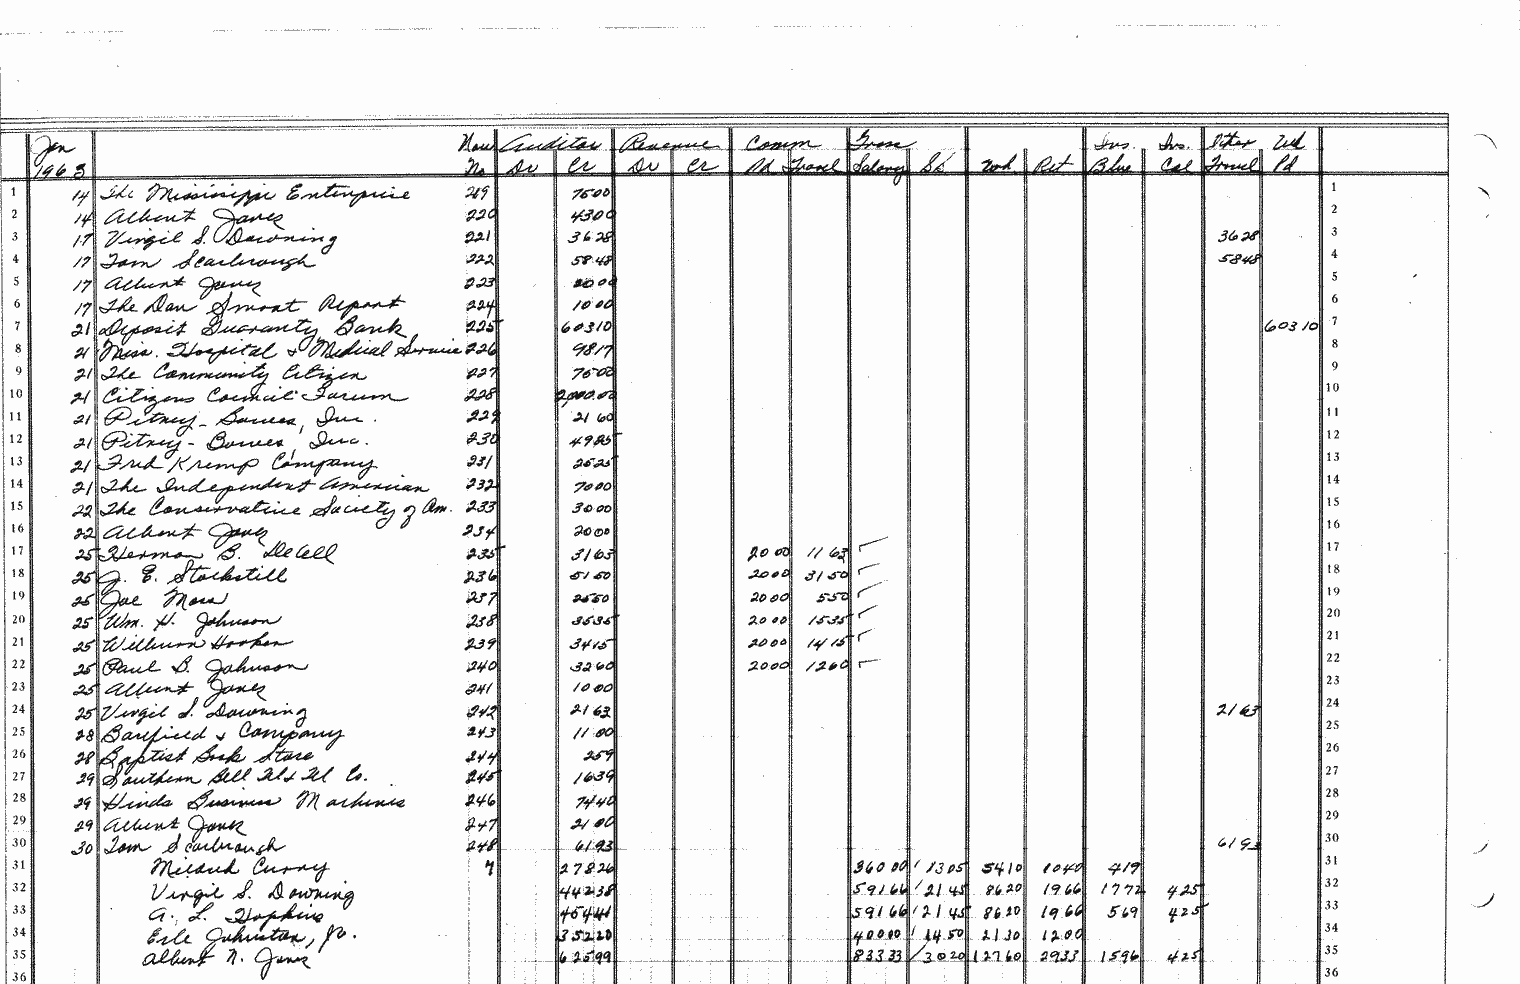 Jan Nou Auditor Revenue Comm Gross Ins. Ins. Other Wh
1963 No Dr Cr Dr Cr Pd Travel Salary SS Wh Ret Blue Cal Travel Pd
1 14 The Mississippi Enterprise 219 7500 1
2 14 Albert Jones 220 4300 2
3 17 Virgil S. Downing 221 3628 3628 3
4 17 Tom Scarbrough 222 5848 5848 4
5 17 Albert Jones 223 5
6 17 The Dan Smoot Report 224 1000 6
7 21 Deposit Guaranty Bank 225 60310 60310 7
8 21 Miss. Hospital & Medical Service 226 9817 8
9 21 The Community Citizen 227 7500 9
10 21 Citizens Council Forum 228 2,000.00 10
11 21 Pitney-Bowes, Inc. 229 2160 11
12 21 Pitney-Bowes, Inc. 230 4985 12
13 21 Fred Kremp Company 231 2525 13
14 21 The Independent American 232 7000 14
15 22 The Conservative Society of Am. 233 3000 15
16 22 Albert Jones 234 2000 16
17 25 Herman B. DeCell 235 3163 2000 1163 17
18 25 J. E. Stockstill 236 5150 2000 3150 18
19 25 Joe Moss 237 2550 2000 550 19
20 25 Wm. H. Johnson 238 3535 2000 1535 20
21 25 Wilburn Hooker 239 3415 2000 1415 21
22 25 Paul B. Johnson 240 3260 2000 1260 22
23 25 Albert Jones 241 1000 23
24 25 Virgil S. Downing 242 2163 2163 24
25 28 Barefield & Company 243 1100 25
26 28 Baptist Book Store 244 259 26
27 29 Southern Bell Tel & Tel Co. 245 1639 27
28 29 Hinds Business Machines 246 7440 28
29 29 Albert Jones 247 2100 29
30 30 Tom Scarbrough 248 6193 6193 30
31 Milard Curry 27826 36000 1305 5410 1040 419 31
32 Virgil S. Downing 44238 59166 2145 8620 1966 1772 425 32
33 A. L. Hopkins 45441 59166 2145 8620 1966 569 425 33
34 Erle Johnston, Jr. 35220 40000 1450 2130 1200 34
35 Albert N. Jones 62599 83333 3020 12760 2933 1596 425 35
36 36